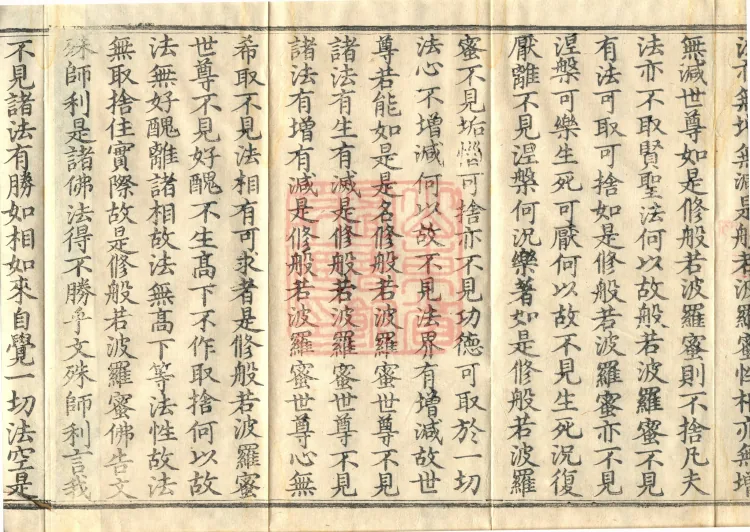 法亦無增無減是般若波羅蜜性相亦無增
無減世尊如是修般若波羅蜜則不捨凡夫
法亦不取賢聖法何以故般若波羅蜜不見
有法可取可捨如是修般若波羅蜜亦不見
涅槃可樂生死可厭何以故不見生死況復
厭離不見涅槃何況樂著如是修般若波羅
蜜不見垢惱可捨亦不見功德可取於一切
法心不增減何以故不見法界有增減故世
尊若能如是是名修般若波羅蜜世尊不見
諸法有生有滅是修般若波羅蜜世尊不見
諸法有增有減是修般若波羅蜜世尊心無
希取不見法相有可求者是修般若波羅蜜
世尊不見好醜不生高下不作取捨何以故
法無好醜離諸相故法無高下等法性故法
無取捨住實際故是修般若波羅蜜佛告文
殊師利是諸佛法得不勝乎文殊師利言我
不見諸法有勝如相如來自覺一切法空是